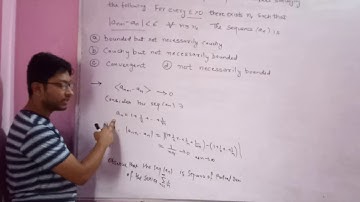 the following. For every ε>0 there exists n₀ such that
|aₙ₊₁-aₙ|<ε ∀ n≥n₀. The sequence (aₙ) is
ⓐ bounded but not necessarily Cauchy
ⓑ Cauchy but not necessarily bounded
ⓒ Convergent ⓓ not necessarily bounded
→ <aₙ₊₁-aₙ> → 0
Consider the seq (aₙ) is
aₙ = 1+½+...+1/n
|aₙ₊₁-aₙ| = |(1+½+...+1/n+1/(n+1))-(1+½+...+1/n)|
= 1/(n+1) → 0 as n→∞
that the seq (aₙ) is sequence of Partial sum
of the series